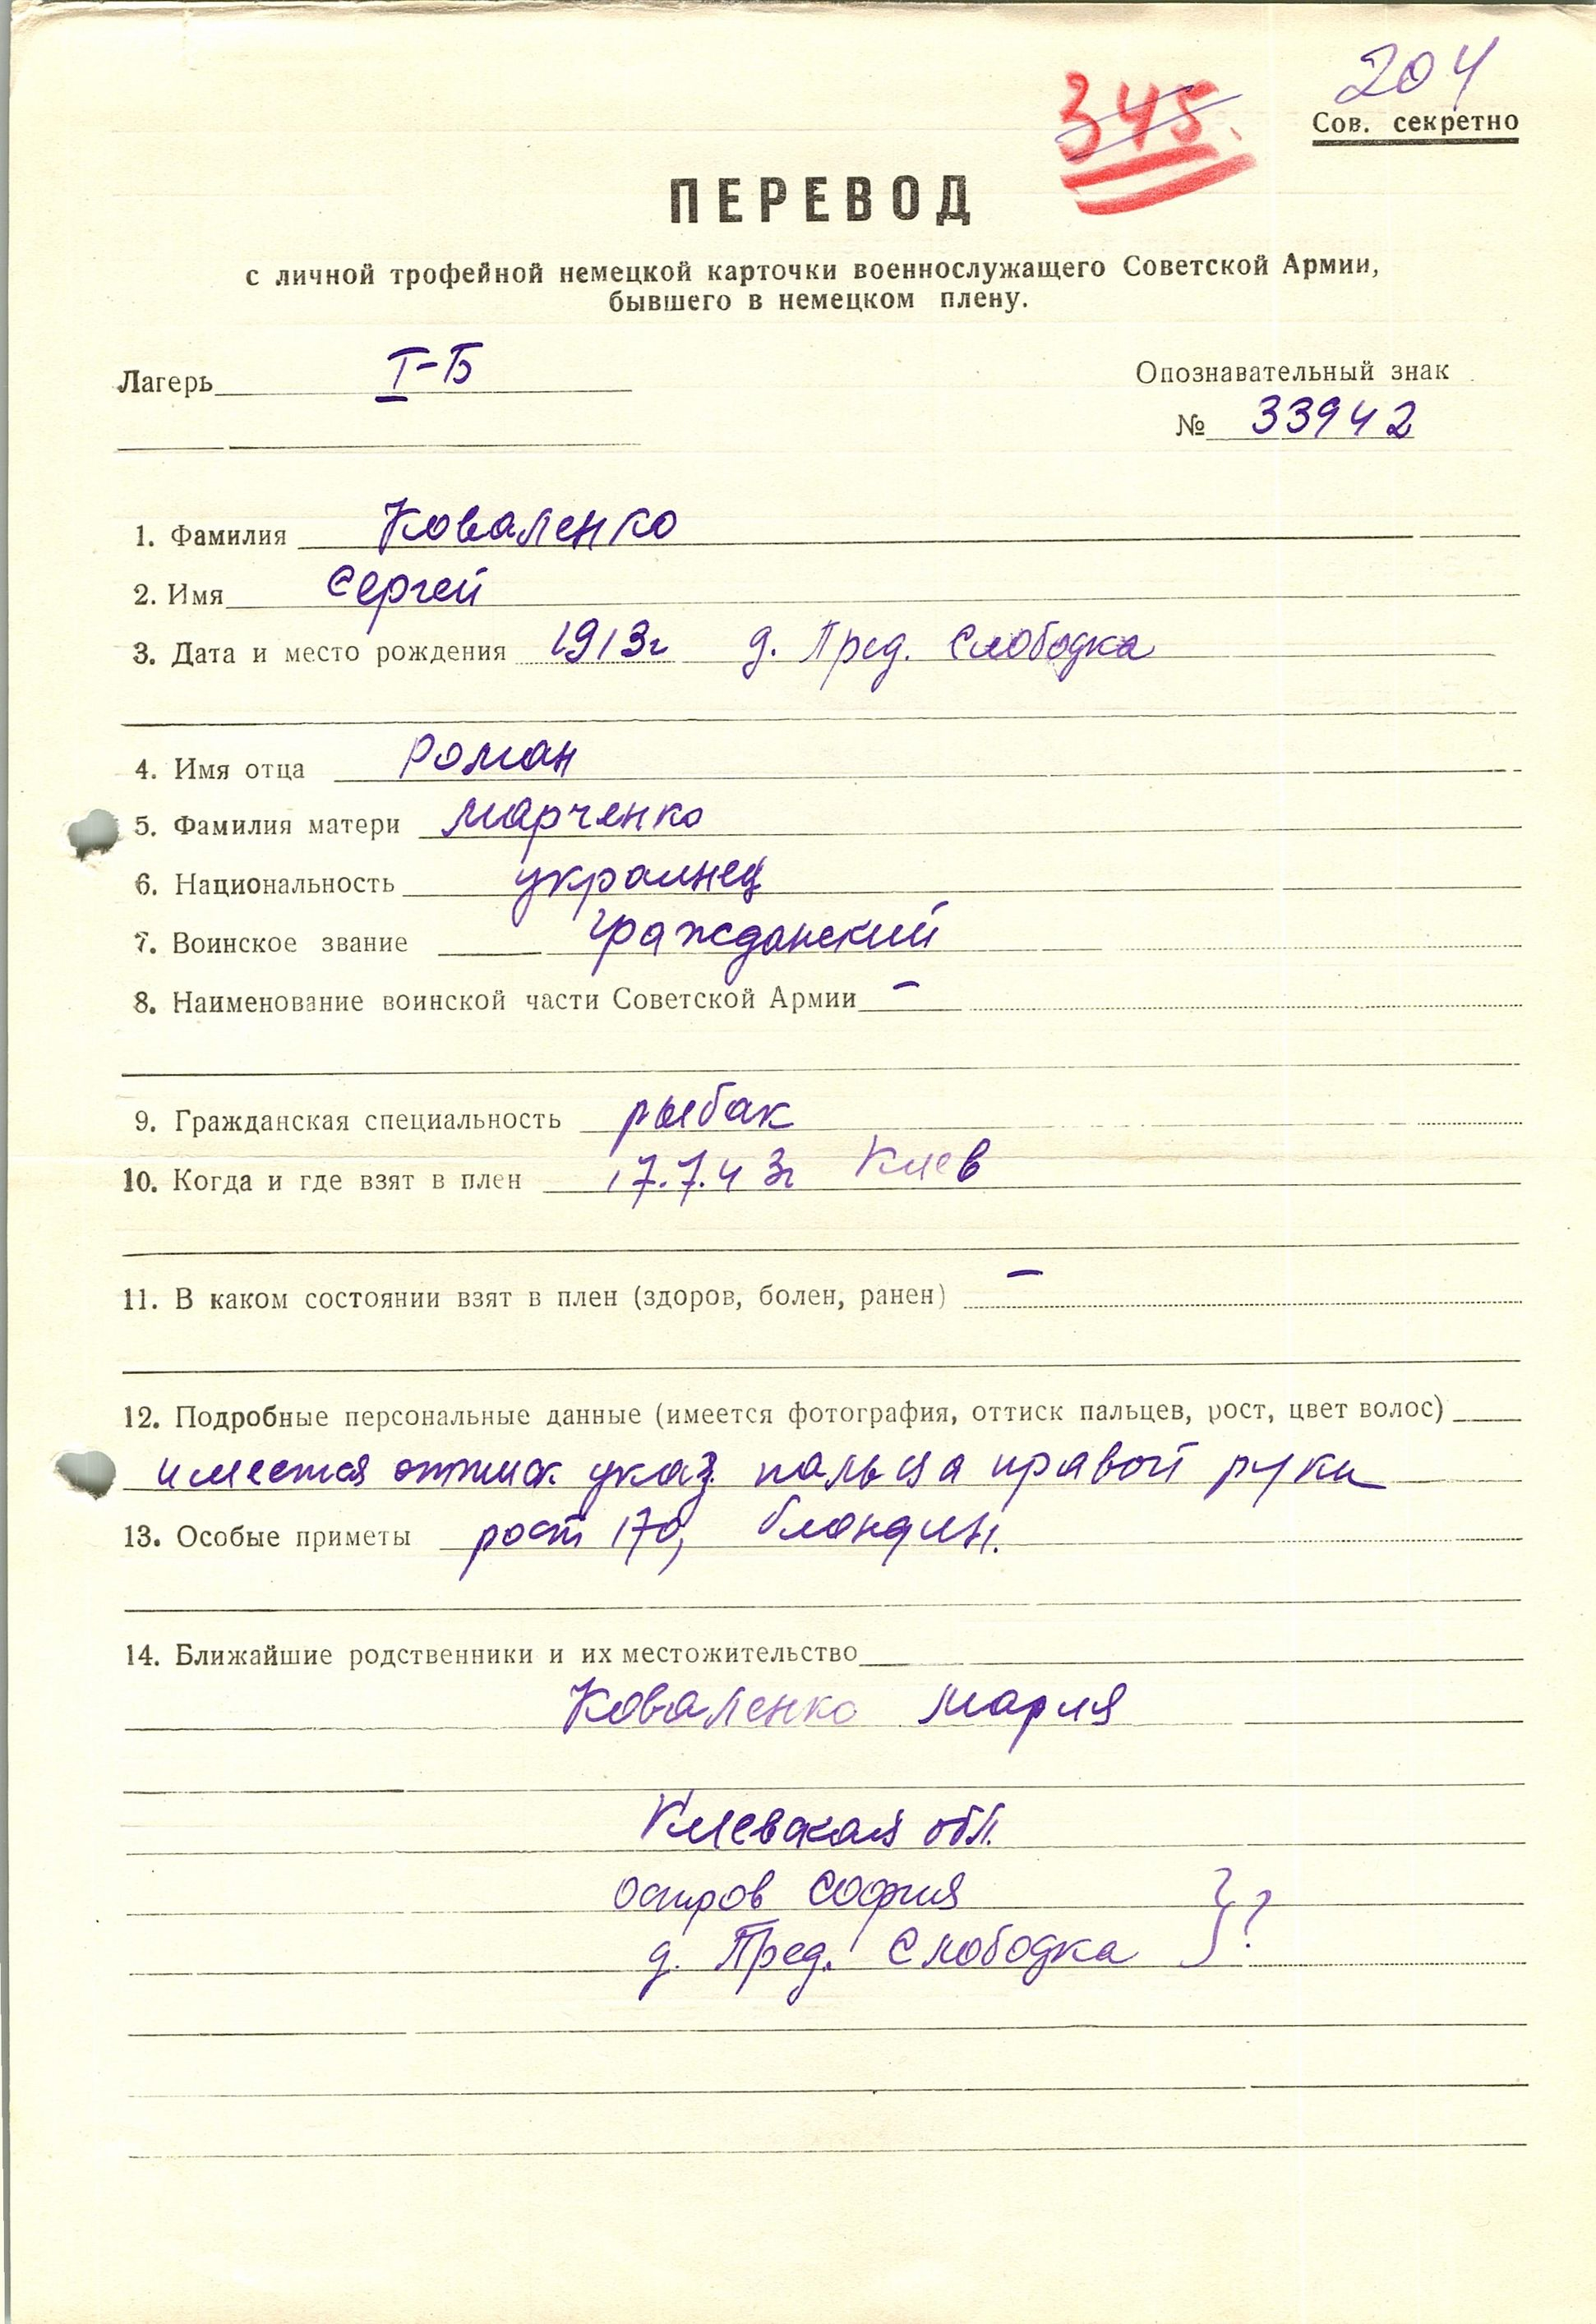 204
345.
Сов. секретно
ПЕРЕВОД
с личной трофейной немецкой карточки военнослужащего Советской Армии,
бывшего в немецком плену.
Лагерь I-Б
Опознавательный знак
№ 33942
1. Фамилия Коваленко
2. Имя Сергей
3. Дата и место рождения 1913г д. Пред. Слободка
4. Имя отца Роман
5. Фамилия матери Марченко
6. Национальность украинец
7. Воинское звание гражданский
8. Наименование воинской части Советской Армии –
9. Гражданская специальность рыбак
10. Когда и где взят в плен 17.7.43г Киев
11. В каком состоянии взят в плен (здоров, болен, ранен) –
12. Подробные персональные данные (имеется фотография, оттиск пальцев, рост, цвет волос)
имеется оттиск указ. пальца правой руки
13. Особые приметы рост 170, блондин.
14. Ближайшие родственники и их местожительство
Коваленко Мария
Киевская обл.
остров София
д. Пред. Слободка }?